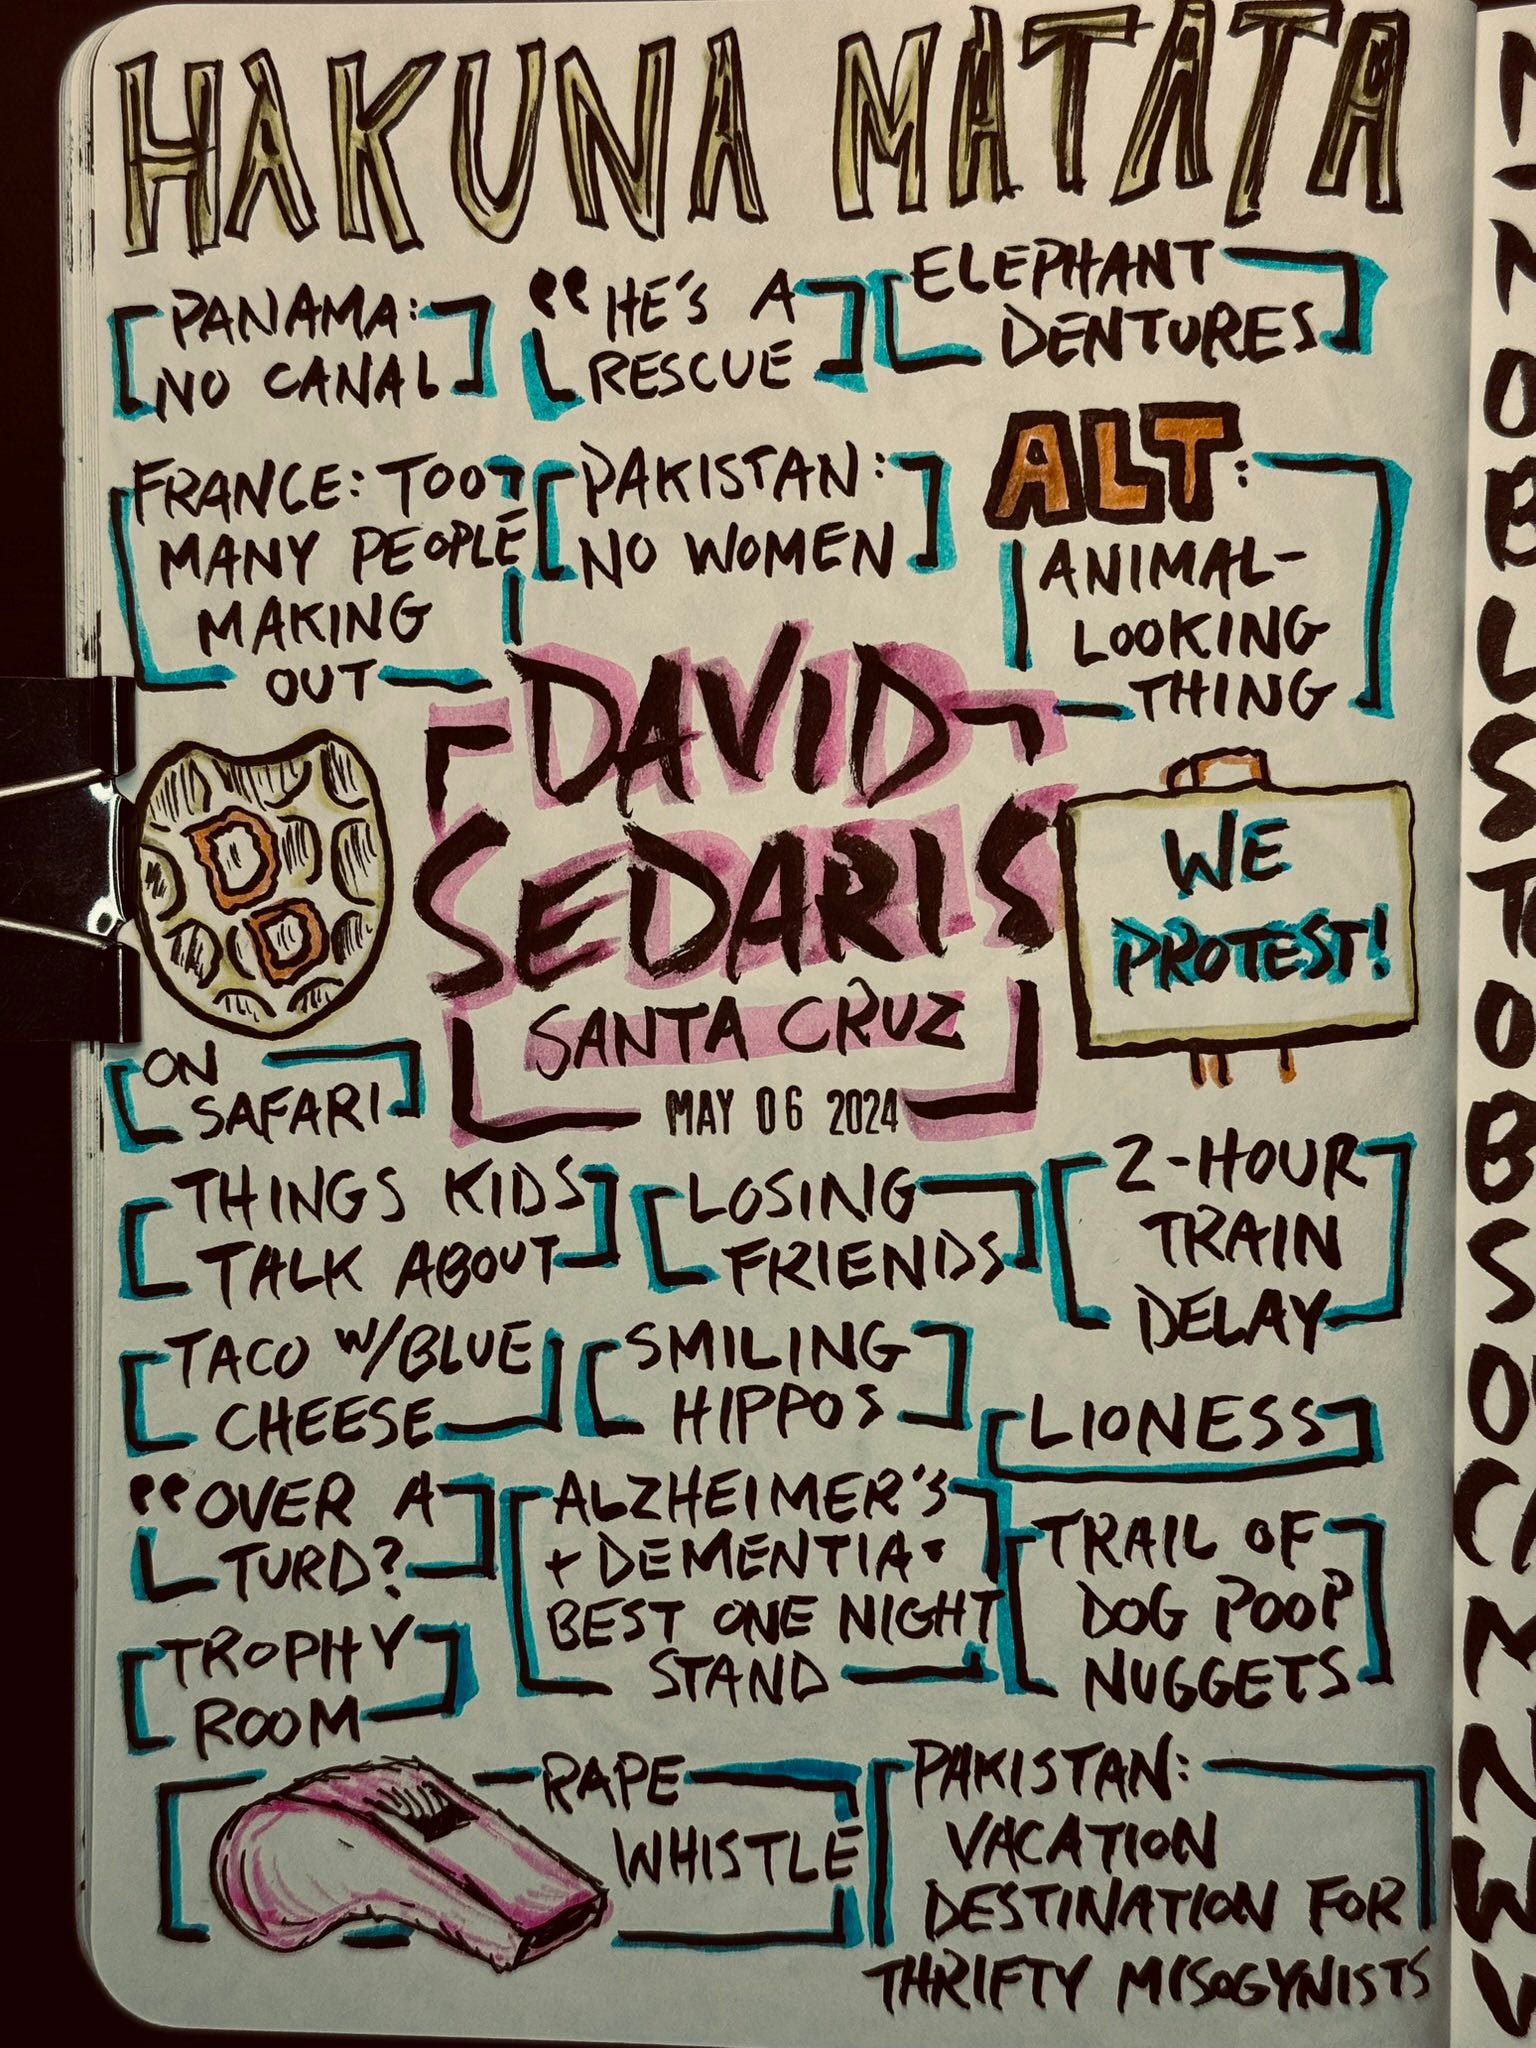 HAKUNA MATATA
PANAMA:
NO CANAL
“HE'S A
RESCUE
ELEPHANT
DENTURES
FRANCE: TOO
MANY PEOPLE
MAKING
OUT
PAKISTAN:
NO WOMEN
ALT:
ANIMAL-
LOOKING
THING
DAVID
SEDARIS
SANTA CRUZ
MAY 06 2024
WE
PROTEST!
ON
SAFARI
THINGS KIDS
TALK ABOUT
LOSING
FRIENDS
2-HOUR
TRAIN
DELAY
TACO W/BLUE
CHEESE
SMILING
HIPPOS
LIONESS
“OVER A
TURD?
ALZHEIMER'S
+ DEMENTIA:
BEST ONE NIGHT
STAND
TRAIL OF
DOG POOP
NUGGETS
TROPHY
ROOM
RAPE
WHISTLE
PAKISTAN:
VACATION
DESTINATION FOR
THRIFTY MISOGYNISTS